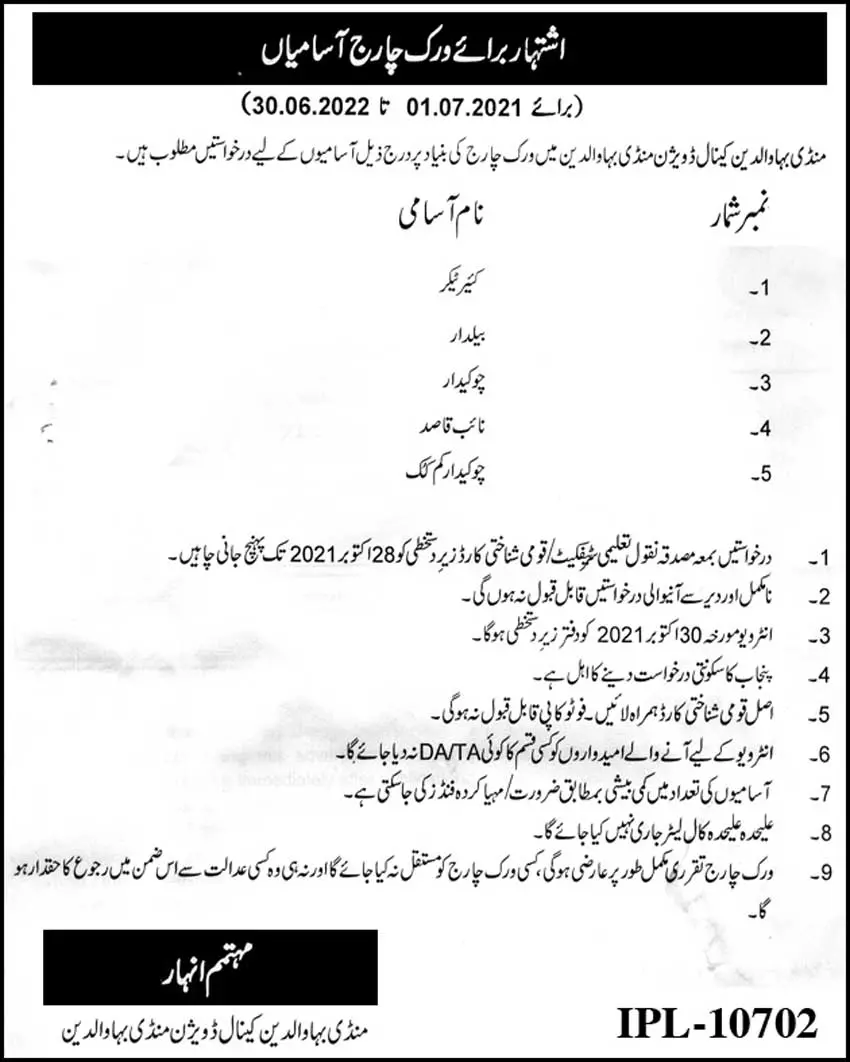 اشتہار برائے ورک چارج آسامیاں
(برائے 01.07.2021 تا 30.06.2022)
منڈی بہاوالدین کینال ڈویژن منڈی بہاوالدین میں ورک چارج کی بنیاد پر درج ذیل آسامیوں کے لیے درخواستیں مطلوب ہیں۔
نمبر شمار نام آسامی
1۔ کئیر ٹیکر
2۔ بیلدار
3۔ چوکیدار
4۔ نائب قاصد
5۔ چوکیدار کم کُک
1۔ درخواستیں بمعہ مصدقہ نقول تعلیمی سٹیفکیٹ/قومی شناختی کارڈ زیرِ دستخطی کو 28 اکتوبر 2021 تک پہنچ جانی چاہیں۔
2۔ نامکمل اور دیر سے آنیوالی درخواستیں قابل قبول نہ ہوں گی۔
3۔ انٹرویو مورخہ 30 اکتوبر 2021 کو دفتر زیرِ دستخطی ہوگا۔
4۔ پنجاب کا سکونتی درخواست دینے کا اہل ہے۔
5۔ اصل قومی شناختی کارڈ ہمراہ لائیں۔ فوٹو کاپی قابل قبول نہ ہوگی۔
6۔ انٹرویو کے لیے آنے والے امیدواروں کو کسی قسم کا کوئی DA/TA نہ دیا جائے گا۔
7۔ آسامیوں کی تعداد میں کمی بیشی بمطابق ضرورت/مہیا کردہ فنڈز کی جاسکتی ہے۔
8۔ علیحدہ علیحدہ کال لیٹر جاری نہیں کیا جائے گا۔
9۔ ورک چارج تقرری مکمل طور پر عارضی ہوگی، کسی ورک چارج کو مستقل نہ کیا جائے گا اور نہ ہی وہ کسی عدالت سے اس ضمن میں رجوع کا حقدار ہو
گا۔
مہتمم انہار
منڈی بہاوالدین کینال ڈویژن منڈی بہاوالدین
IPL-10702